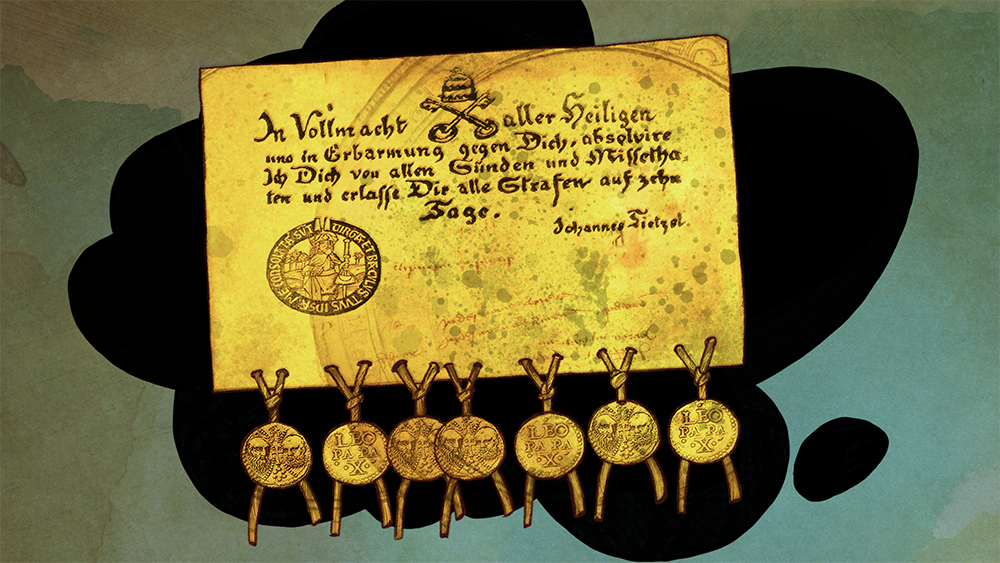 In Vollmacht aller Heiligen
und in Erbarmung gegen Dich, absolvire
Ich Dich von allen Sünden und Missetha-
ten und erlasse Dir alle Strafen auf zehn
Tage.
Johannes Tietzel.
VIRGA ET BACULUS TUUS IPSA ME CONSOLATA SUT
LEO
PA PA
X
LEO
PA PA
X
LEO
PA PA
X